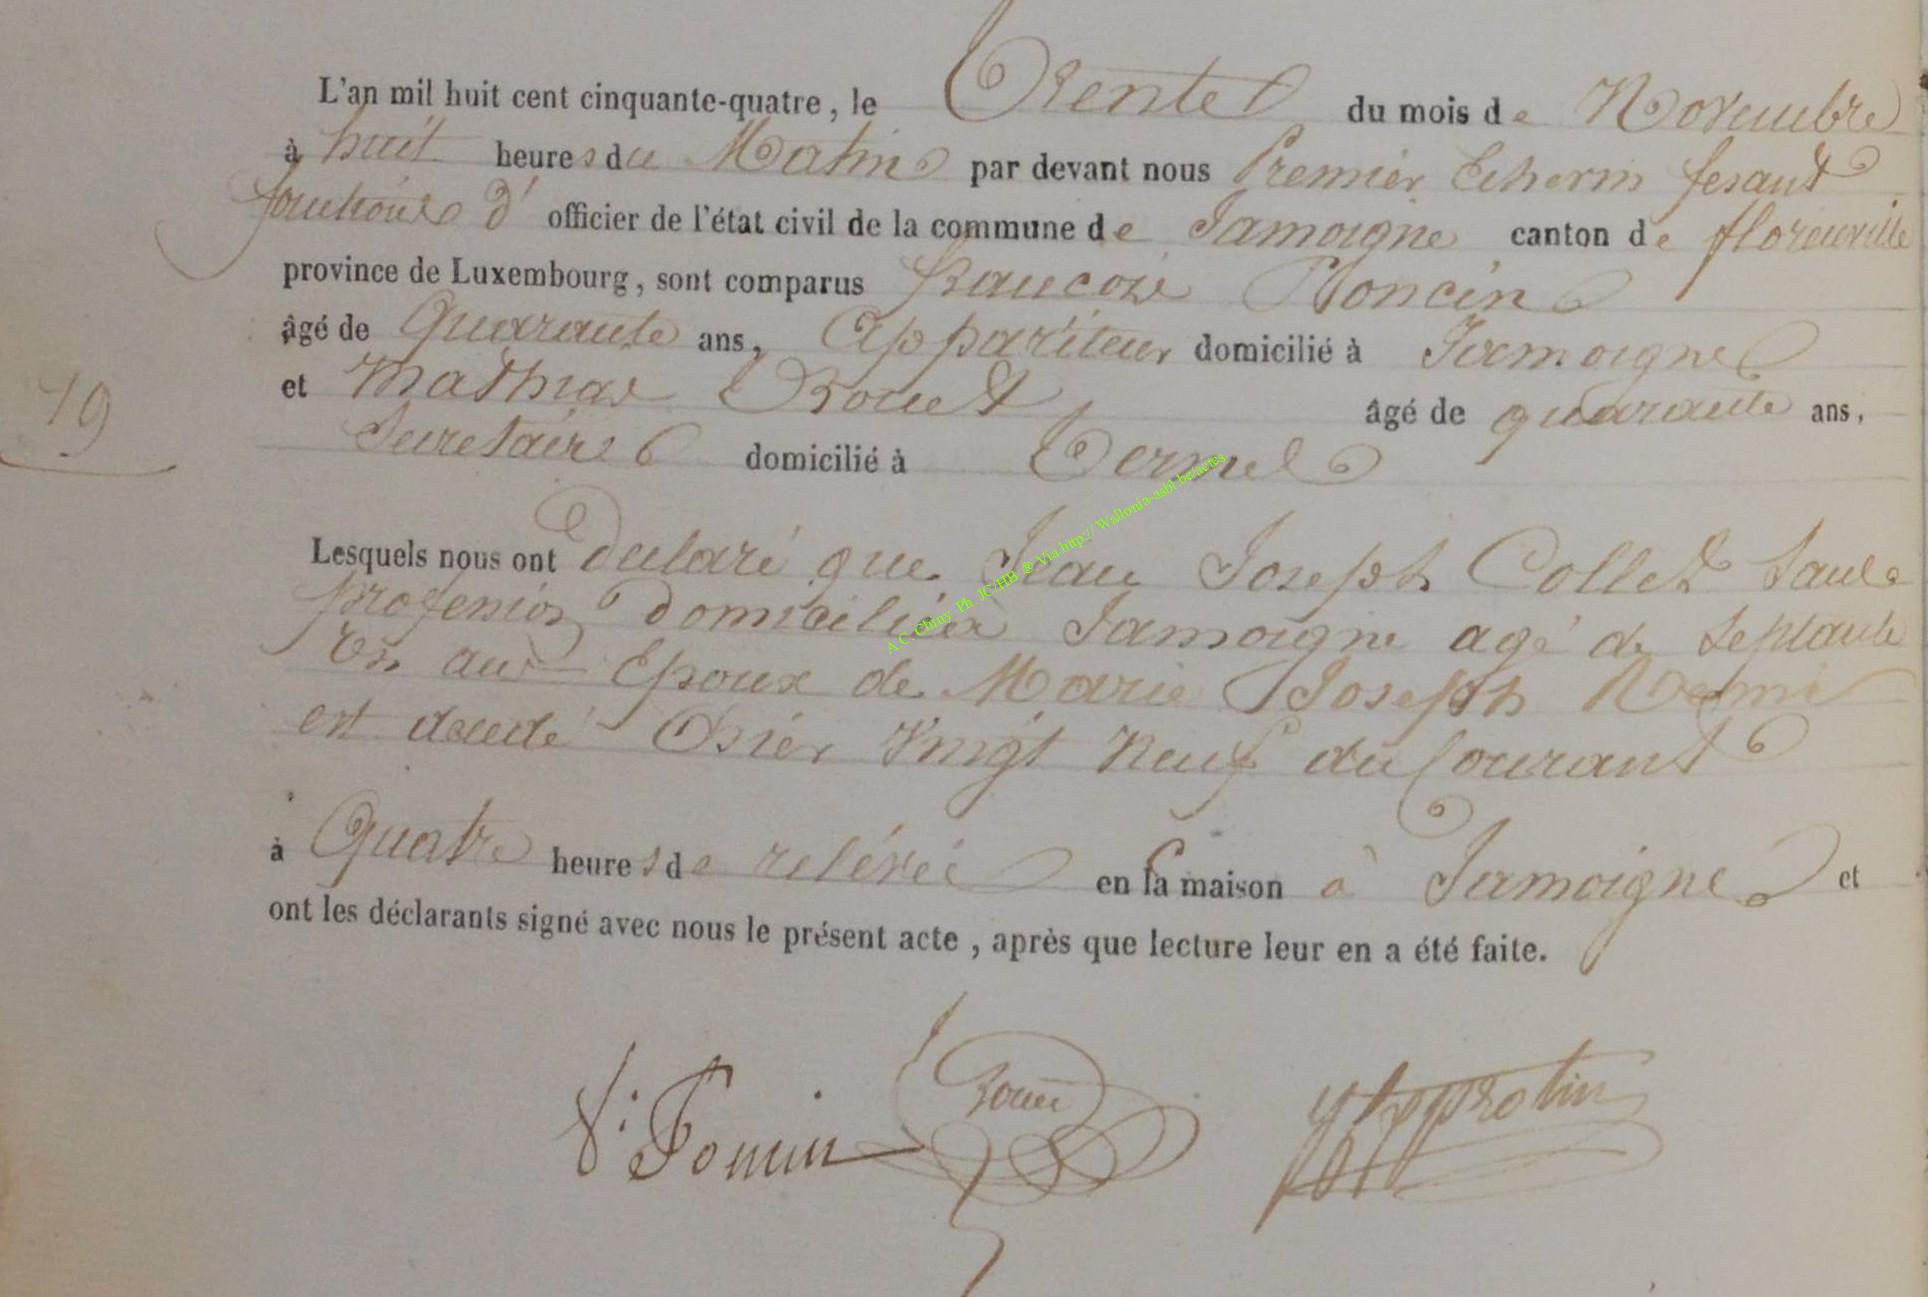 L'an mil huit cent cinquante-quatre, le Trente du mois de Novembre
à huit heures du Matin par devant nous Premier Echevin fesant
fonctions d' officier de l'état civil de la commune de Jamoigne canton de florenville
province de Luxembourg, sont comparus francois Poncin
âgé de Quarante ans, Appariteur domicilié à Jamoigne
19
et Mathias Rouet âgé de quarante ans,
Secretaire domicilié à Termel
Lesquels nous ont declaré que Jean Joseph Collet sans
profession domicilié à Jamoigne agé de septante
un ans Epoux de Marie Joseph Remi
est decedé hier vingt neuf du courant
à Quatre heures de relévée en sa maison à Jamoigne et
ont les déclarants signé avec nous le présent acte, après que lecture leur en a été faite.
Rouet
A.C. Chiny Ph JC/HB @ Via http:// Wallonia-asbl-be/actes